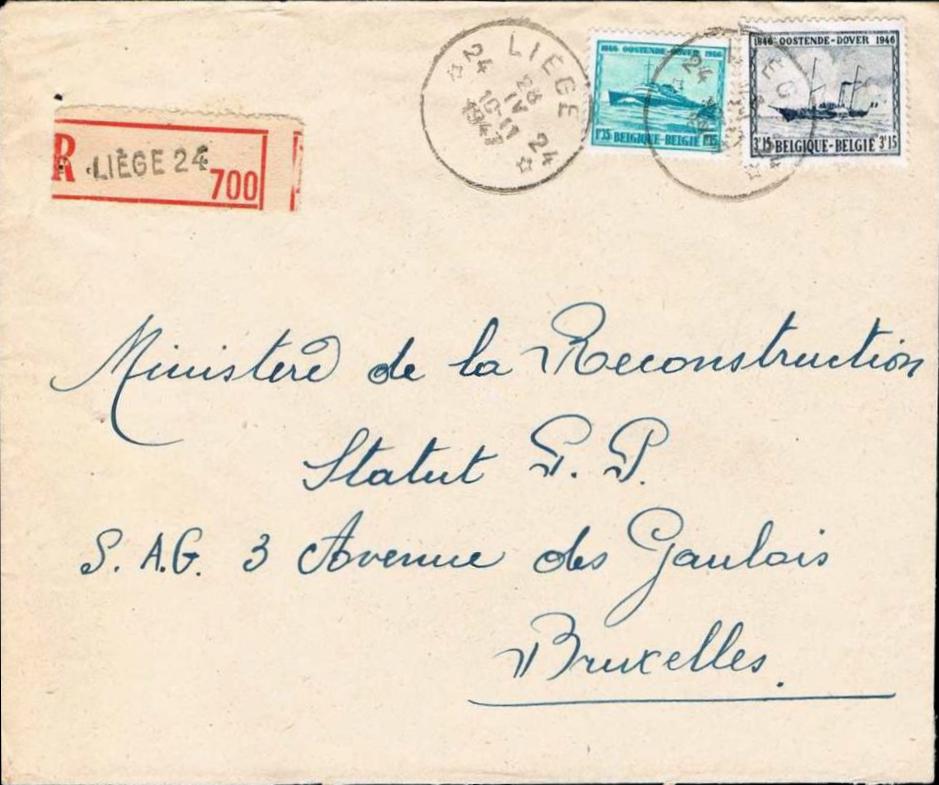 LIÈGE
24 24
28
IV
10-11
1947
1846 OOSTENDE-DOVER 1946
1'35 BELGIQUE-BELGIË 1'35
1846 OOSTENDE-DOVER 1946
3'15 BELGIQUE-BELGIË 3'15
24
R LIÈGE 24
700
Ministerè de la Reconstruction
Statut P. P.
S. A.G. 3 Avenue des Gaulois
Bruxelles.